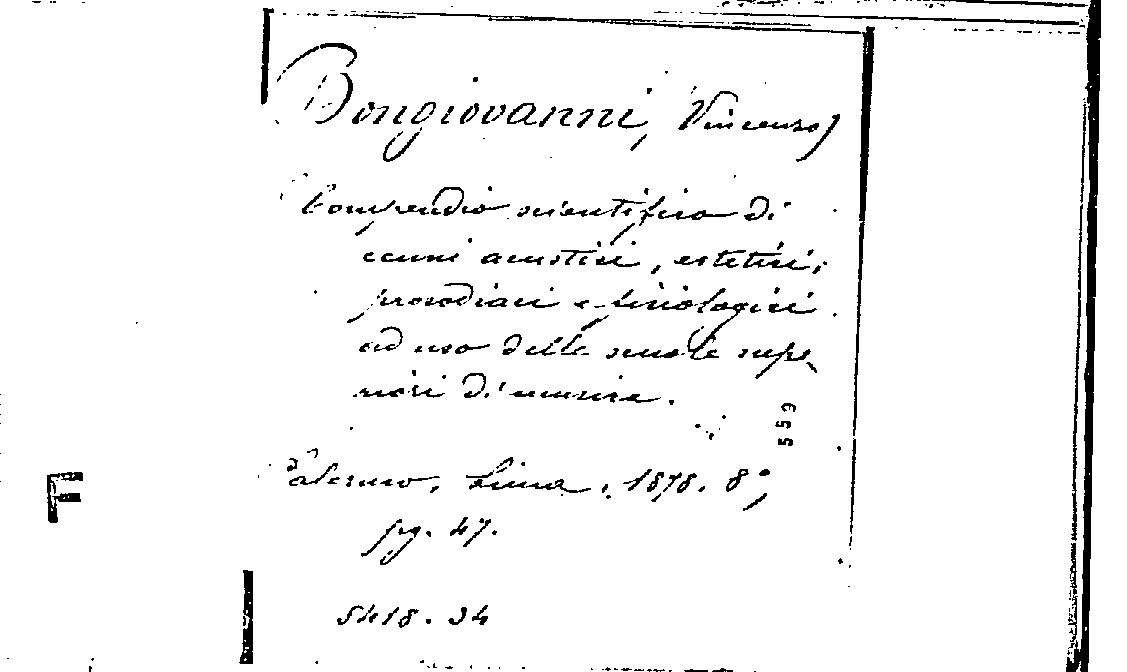 Bongiovanni, Vincenzo)
Compendio scientifico di
cenni acustici, estetici,
prosodiaci e fisiologici
ad uso delle scuole supe-
riori di musica.
559
Palermo, Lima, 1878. 8°,
pg. 47.
F
5418. 34